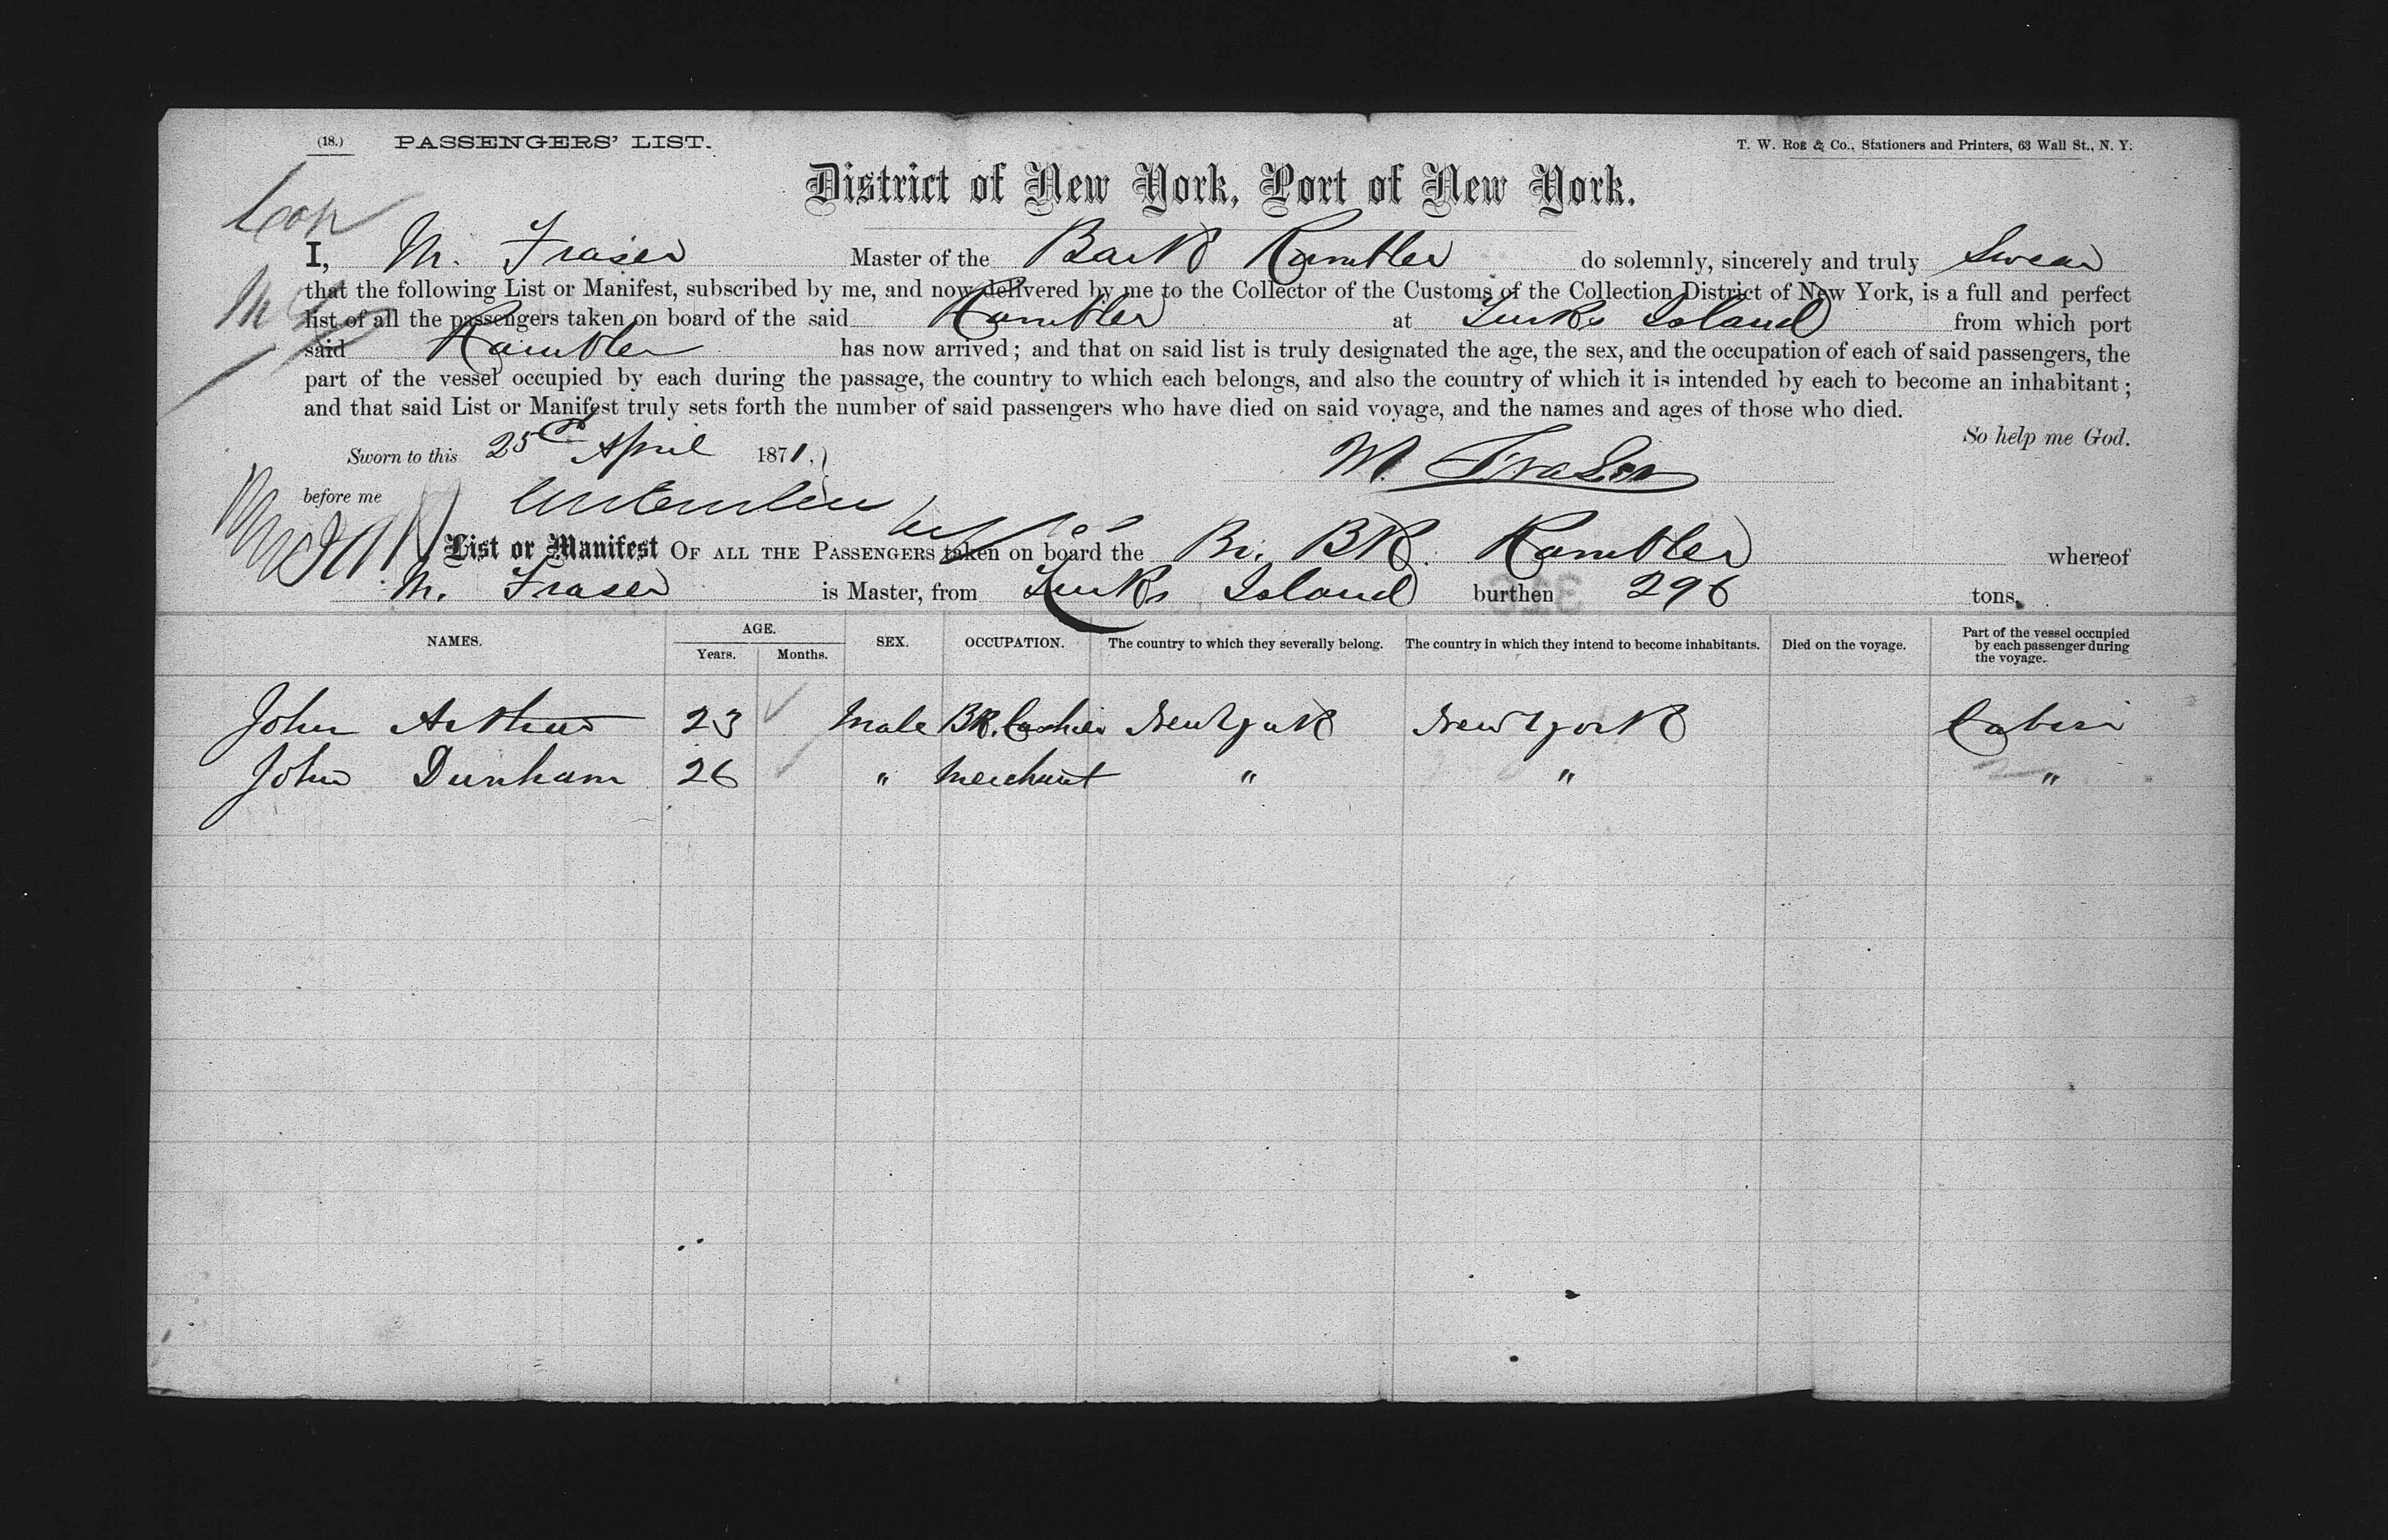 (18.) PASSENGERS' LIST.
T. W. Roe & Co., Stationers and Printers, 63 Wall St., N. Y.
District of New York, Port of New York.
Cop
I, M. Fraser Master of the Bark Rambler do solemnly, sincerely and truly Swear
that the following List or Manifest, subscribed by me, and now delivered by me to the Collector of the Customs of the Collection District of New York, is a full and perfect
list of all the passengers taken on board of the said Rambler at Turks Island from which port
said Rambler has now arrived; and that on said list is truly designated the age, the sex, and the occupation of each of said passengers, the
part of the vessel occupied by each during the passage, the country to which each belongs, and also the country of which it is intended by each to become an inhabitant;
and that said List or Manifest truly sets forth the number of said passengers who have died on said voyage, and the names and ages of those who died.
So help me God.
Sworn to this 25th April 1871.
M. Fraser
before me
List or Manifest OF ALL THE PASSENGERS taken on board the Br. BK. Rambler whereof
M. Fraser is Master, from Turks Island burthen 296 tons.
NAMES. AGE. Years. Months. SEX. OCCUPATION. The country to which they severally belong. The country in which they intend to become inhabitants. Died on the voyage. Part of the vessel occupied by each passenger during the voyage.
John Arthur 23 Male BK. Cashier New York New York Cabin
John Dunham 26 " Merchant " " "